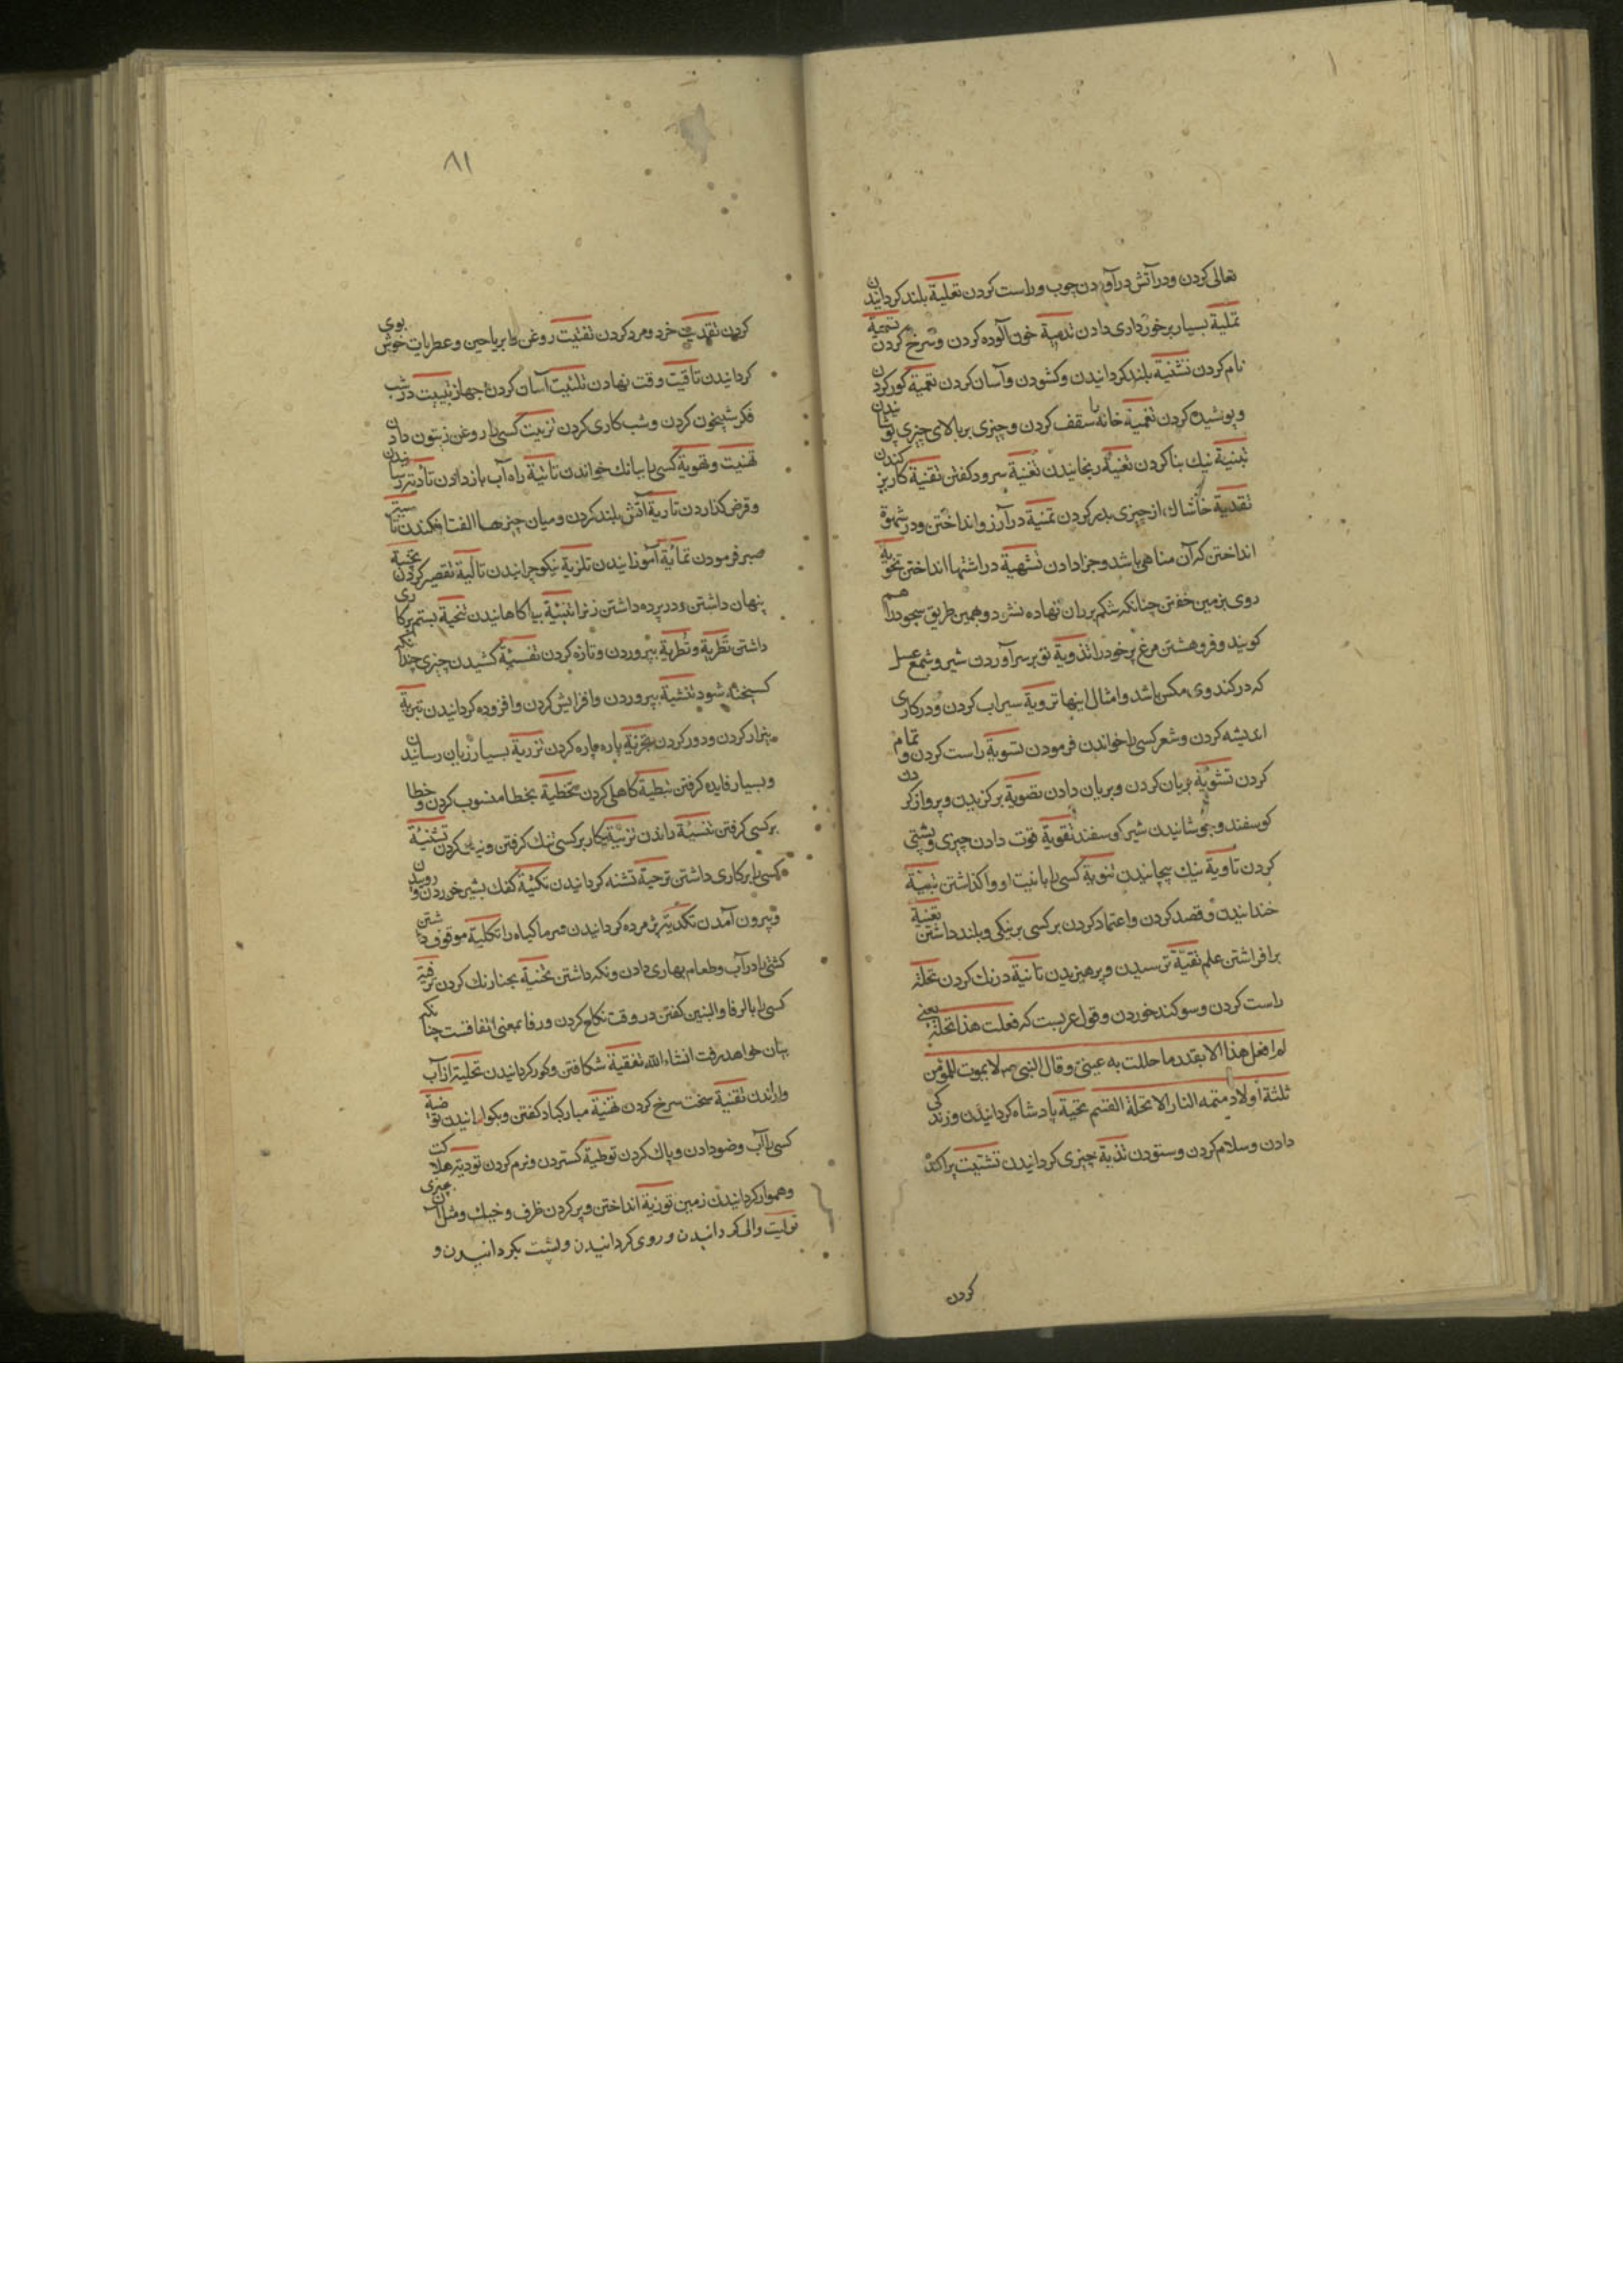 تعالی کردن و در آتش در آوردن چوب و راست کردن تعلیة بلند کردانیدن
تملیة بسیار برخورداری دادن تدمیة خون آلوده کردن و سرخ کردن تسمیة
نام کردن تشنیة بلند کردانیدن و کشودن و آسان کردن تعمیة کور کردن
و پوشیدن کردن تغمیة خانه را سقف کردن و چیزی بر بالای چیزی پوشانیدن
تبنیة نیك بنا کردن تعنیة رنجانیدن تغنیة سرود کفتن تقنیة کاریز کندن
تقدیة خاشاك از چیزی بدر کردن تمنیة در آرزو انداختن و در شهوة
انداختن که آن مناهی باشد و جزا دادن تشهیة در اشتها انداختن تخویة
روی بزمین خفتن چنانکه شکم بر ران نهاده نشود و بهمین طریق سجود را هم
کویند و فروهشتن مرغ پر خود را تدویة تو بر سر آوردن شیر و شمع عسل
که در کندوی مکس باشد و امثال اینها ترویة سیراب کردن و در کاری
اندیشه کردن و شعر کسی را خواندن فرمودن تسویة راست کردن و تمام
کردن تشویة بریان کردن و بریان دادن تصویة برکزیدن و پرواز کردن
کوسفند و خوشانیدن شیر کوسفند تقویة قوت دادن چیزی و پشتی
کردن تاویة نیك پیچانیدن تنویة کسی را با نیت او واکذاشتن تبییة
خندانیدن و قصد کردن و اعتماد کردن بر کسی بر نیکی و بلند داشتن تغییة
برافراشتن علم تقیّة ترسیدن و پرهیزیدن تانیة درنك کردن تحلة
راست کردن و سوکند خوردن و قول عربست که فعلت هذا تحلة یعنی
لم افعل هذا الا بقدر ما حللت به عینی و قال النبی ص لا یموت للمؤمن
ثلثة اولاد متمه النار الا تحلة القسم تحیة پادشاه کردانیدن و زندکی
دادن و سلام کردن و ستودن تذیة چیزی کردانیدن تشتیت پراکنده
کردن
۸۱
کردن تفتیت خرد و مرد کردن تفتیت روغن را بریاحین و عطریات خوش بوی
کردانیدن تاقیت وقت نهادن تلثیت آسان کردن جهاز تبییت در شب
فکر شبیخون کردن و شب کاری کردن تزییت کسی را روغن زیتون دادن
تهنیت و تهویة کسی را ببانك خواندن تاتیة راه آب باز دادن تادیة رسانیدن
و قرض کذاردن تاریة آتش بلند کردن و میان چیزها الفت افکندن تاسیة
صبر فرمودن تمایة آموزانیدن تلزیة نیکو چرانیدن تالیة تقصیر کردن تخبیة
پنهان داشتن و در پرده داشتن زنرا تنبئة بیاکاهانیدن تنحیة بستم بر کاری
داشتن تطریة و تطریة بپروردن و تازه کردن تفسیة کشیدن چیزی چندانکه
کسیخته شود تنشیة بپروردن و افزایش کردن و افزوده کردانیدن تبریة
بیزار کردن و دور کردن تجزیة پاره پاره کردن تزریة بسیار زیان رسانیدن
و بسیار فایده کرفتن تبطیة کاهلی کردن تخطیة بخطا منسوب کردن و خطا
بر کسی کرفتن تنسیة راندن تزنیة کار بر کسی تنك کرفتن و نیك کردن تشنیة
کسی را بر کاری داشتن ترحیة تشنه کردانیدن تکثیة کفك بشیر خوردن و روییدن
و بیرون آمدن تکدیة پژمرده کردانیدن سرما کیاه را تکلیة موقوف داشتن
کشتی را در آب و طعام بهاری دادن و نکه داشتن تحنیة بحنا رنك کردن ترفیة
کسی را بالرفا و البنین کفتن در وقت نکاح کردن و رفا بمعنی اتفاقست چنانکه
بیان خواهد رفت انشاء الله تفقیة شکافتن و کور کردانیدن تحلیة از آب
واراندن تقنیة سخت سرخ کردن تهنیة مبارکباد کفتن و بکوارانیدن توضیة
کسی را آب وضو دادن و پاك کردن توطیة کستردن و نرم کردن تودیة هلاکت
و هموار کردانیدن زمین توزیة انداختن و پر کردن ظرف و خیك و مثل آن چیزی
تولیت والی کردانیدن و روی کردانیدن و پشت بکردانیدن و